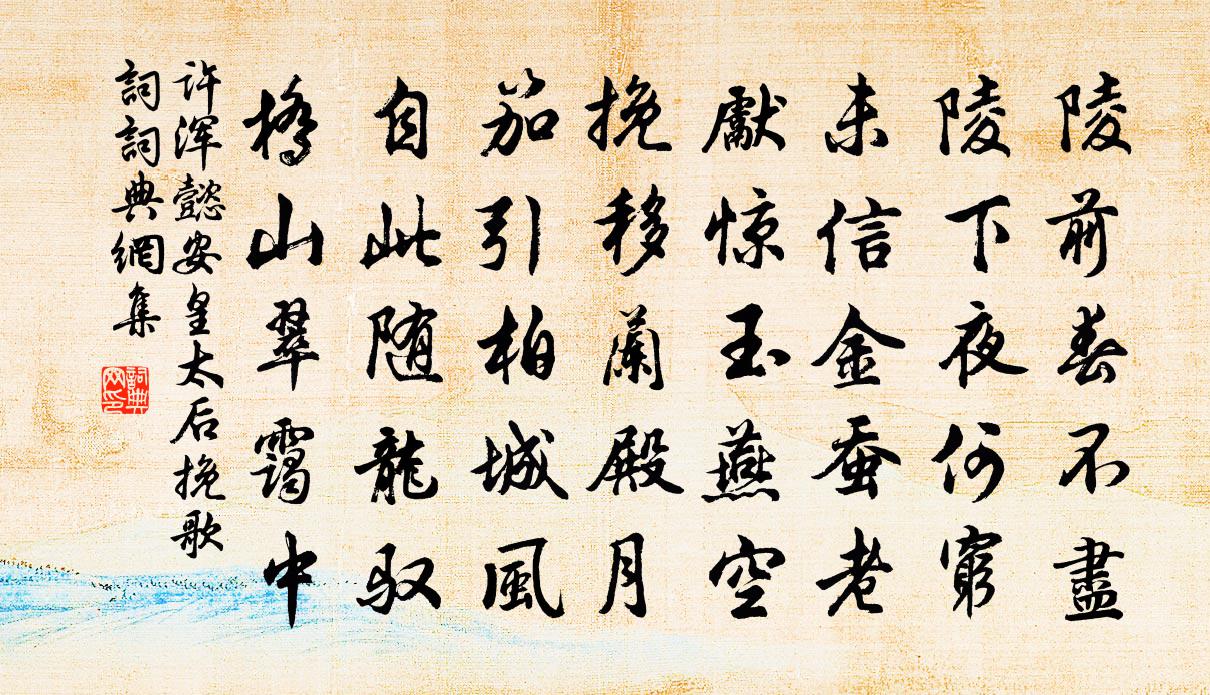 陵前春不盡
陵下夜何窮
未信金蚕老
獻惊玉燕空
挽移蘭殿月
笳引柏城風
自此随龍馭
橋山翠靄中
许渾懿安皇太后挽歌
詞詞典網集
詞典網印